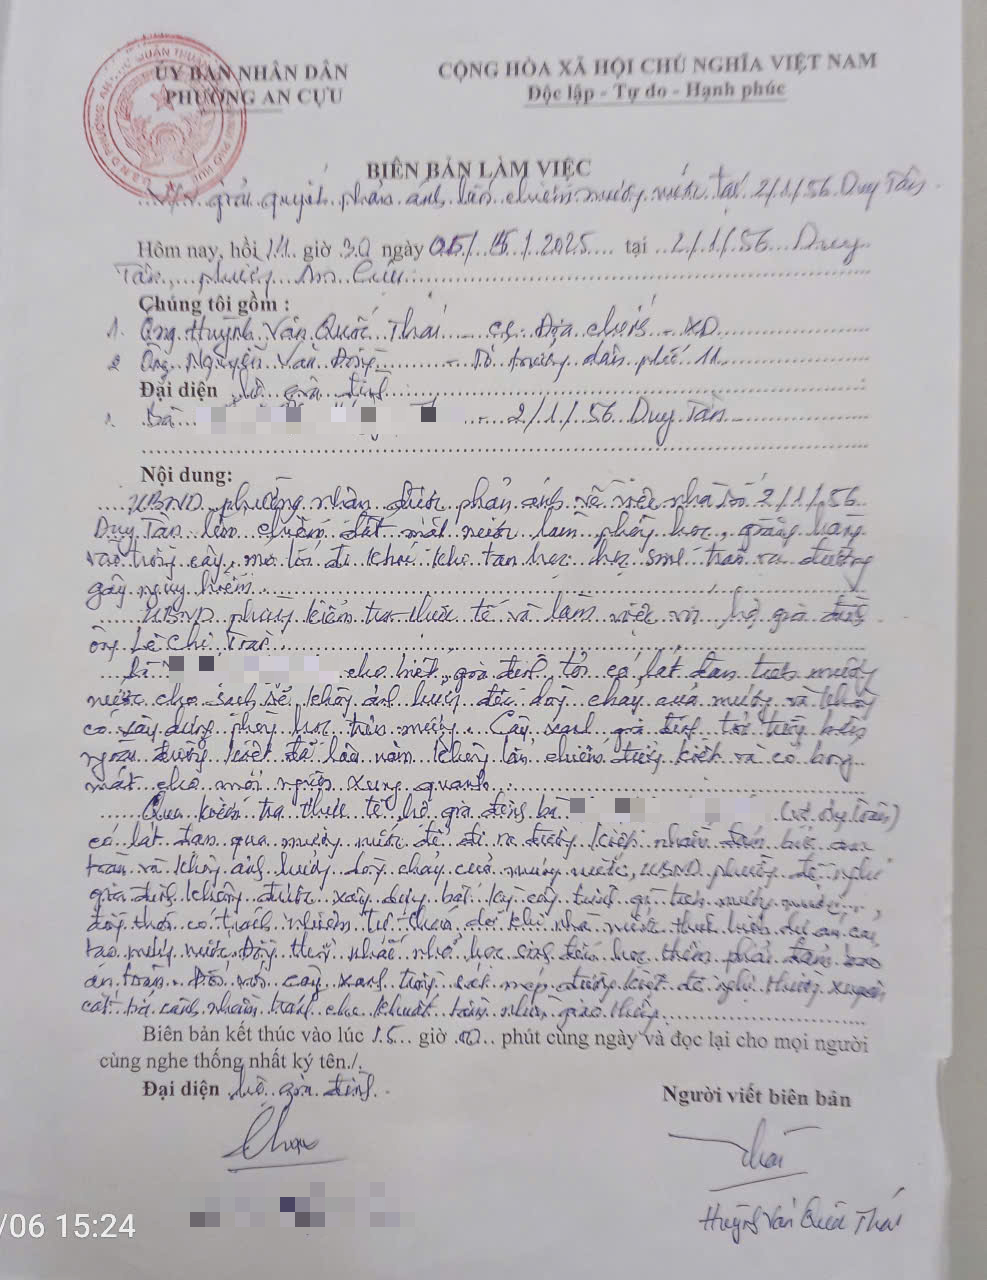 ỦY BAN NHÂN DÂN
PHƯỜNG AN CỰU
CỘNG HÒA XÃ HỘI CHỦ NGHĨA VIỆT NAM
Độc lập - Tự do - Hạnh phúc
BIÊN BẢN LÀM VIỆC
V/v giải quyết phản ánh lấn chiếm mương nước tại 2/1/56 Duy Tân
Hôm nay, hồi 14 giờ 30 ngày 2025 tại 2/1/56 Duy
Tân, phường An Cựu
Chúng tôi gồm :
1. Ông Huỳnh Văn Quốc Thái CC Địa chính - XD
2 Ông Nguyễn Văn - Tổ trưởng dân phố 11
Đại diện hộ gia đình
1. Bà - 2/1/56 Duy Tân
Nội dung:
UBND phường nhận được phản ánh về việc nhà số 2/1/56
Duy Tân lấn chiếm đất mát nước làm phòng học, giăng hàng
rào trồng cây, mở lối đi khác khi tan học học sinh tràn ra đường
gây nguy hiểm.
UBND phường kiểm tra thực tế và làm việc với hộ gia đình
ông Lê Chí
Bà cho biết, gia đình tôi có lát đan trên mương
nước cho sạch sẽ không ảnh hưởng đến dòng chảy của mương và không
có xây dựng phòng học trên mương. Cây xanh gia đình tôi trồng
ngoài đường kiệt đã lâu năm không lấn chiếm đường kiệt và có bóng
mát cho mọi người xung quanh.
Qua kiểm tra thực tế hộ gia đình bà (vợ ông)
có lát đan qua mương nước để đi ra đường kiệt nhằm đảm bảo an
toàn và không ảnh hưởng dòng chảy của mương nước, UBND phường đề nghị
gia đình không được xây dựng bất kỳ công trình gì trên mương nước,
đồng thời có trách nhiệm tự tháo dỡ khi nhà nước thực hiện dự án cải
tạo mương nước. Đồng thời nhắc nhở học sinh đến học thêm phải đảm bảo
an toàn. Đối với cây xanh trồng sát mép đường kiệt đề nghị thường xuyên
cắt tỉa cành nhằm tránh che khuất tầm nhìn giao thông.
Biên bản kết thúc vào lúc 15 giờ 00 phút cùng ngày và đọc lại cho mọi người
cùng nghe thống nhất ký tên./.
Đại diện hộ gia đình
Người viết biên bản
Thái
Huỳnh Văn Quốc Thái
/06 15:24